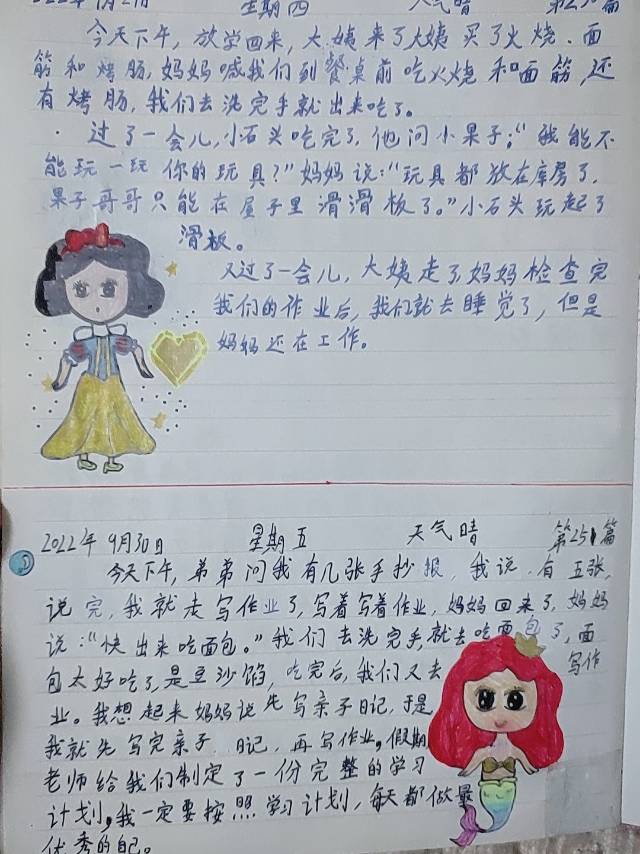 2022年9月29日 星期四 天气晴 第250篇
今天下午，放学回来，大姨来了大姨买了火烧、面
筋和烤肠，妈妈喊我们到餐桌前吃火烧和面筋，还
有烤肠，我们去洗完手就出来吃了。
过了一会儿，小石头吃完了，他问小果子：“我能不
能玩一玩你的玩具？”妈妈说：“玩具都放在库房了，
果子哥哥只能在屋子里滑滑板了。”小石头玩起了
滑板。
又过了一会儿，大姨走了，妈妈检查完
我们的作业后，我们就去睡觉了，但是
妈妈还在工作。
2022年9月30日 星期五 天气晴 第251篇
今天下午，弟弟问我有几张手抄报，我说：有五张，
说完，我就走写作业了，写着写着作业，妈妈回来了，妈妈
说：“快出来吃面包。”我们去洗完手就去吃面包了，面
包太好吃了，是豆沙馅，吃完后，我们又去写作
业。我想起来妈妈说先写亲子日记，于是
我就先写完亲子日记，再写作业。假期
老师给我们制定了一份完整的学习
计划，我一定要按照学习计划，每天都做最
优秀的自己。